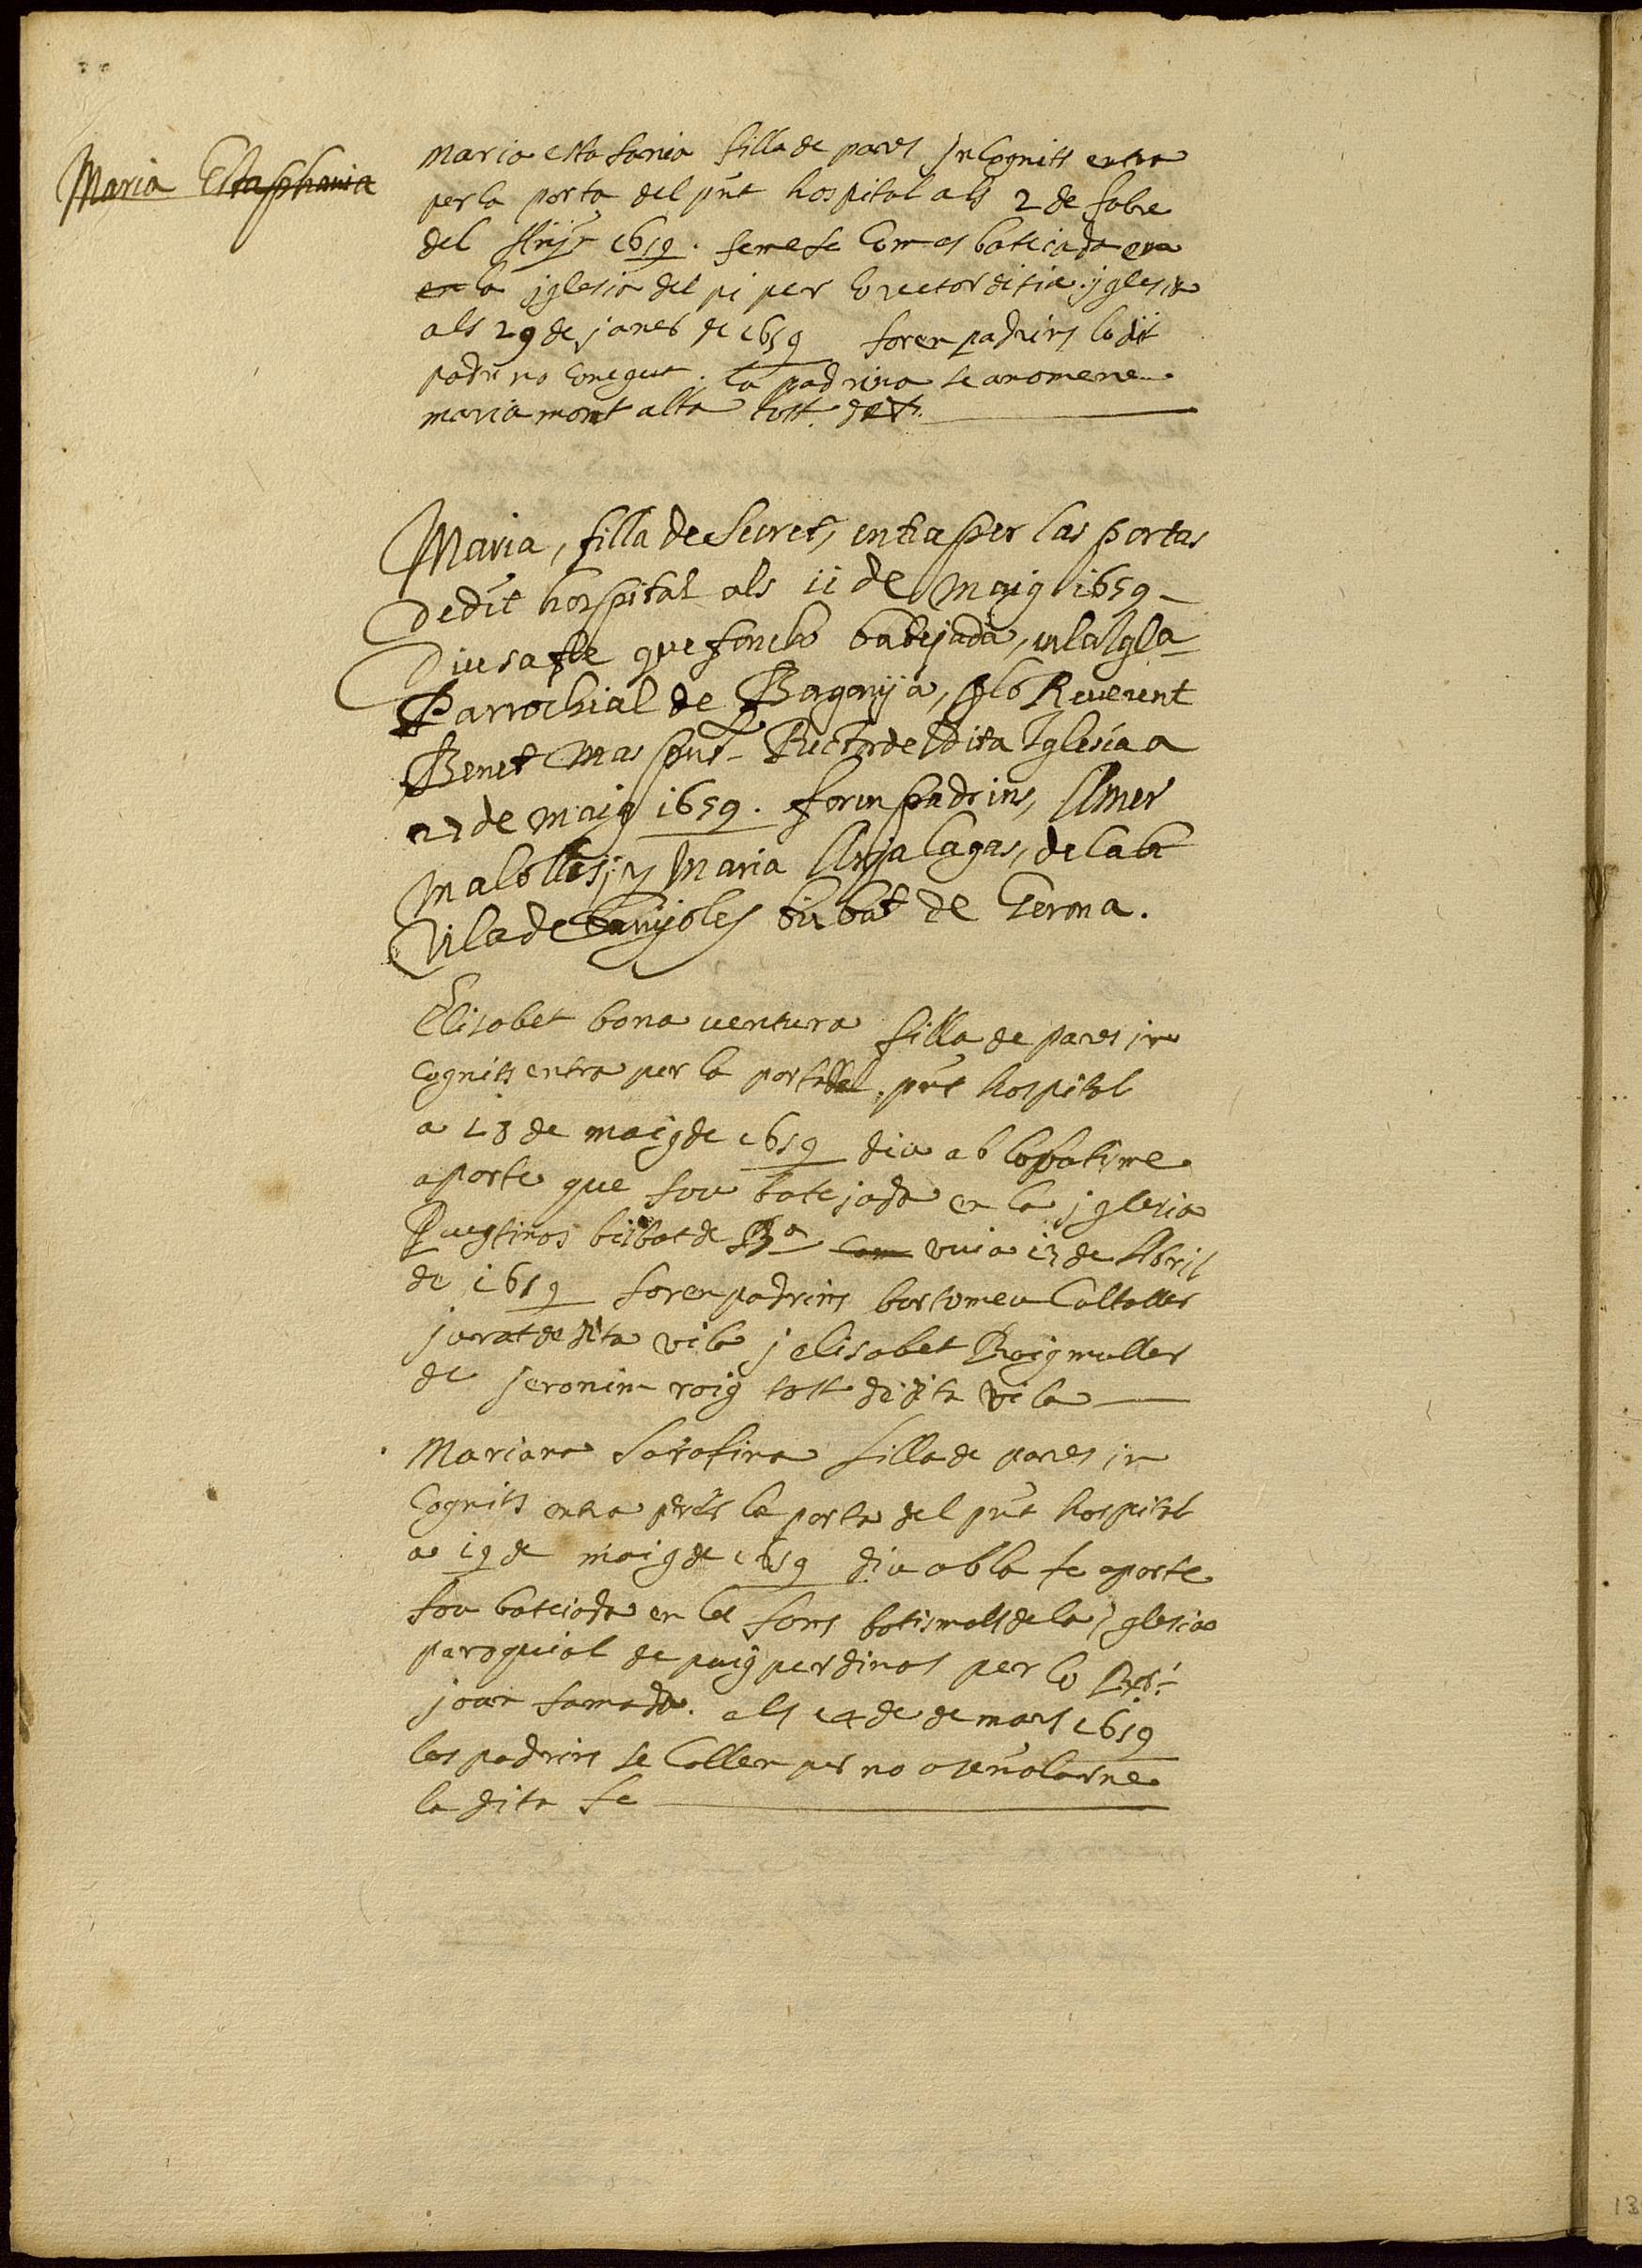 Maria Estaphania
maria estafania filla de pares Incognits entra
per la porta del pnt hospital als 2 de fabre
del 1659. feme fe com es bateiada
en la iglesia del pi per lo rector yglesia
als 29 de janer de 1659 foren padrins lo dit
padri no conegut. la padrina se anomene
maria mont alta tott.
Maria, filla de Secret, entra per las portas
de dit hospital als 11 de Maig 1659
Diu sa fe que fonch batejada, en la Igla
Parrochial de Bagonija, Reverent
Benet Mas Rector de dita Iglesia a
de Maig 1659. foren padrins,
y Maria de la
Vila de Banyoles bisbat de Gerona.
Elisabet bona ventura filla de pares in
cognits entra per la porta del pnt hospital
a 13 de maig de 1659 diu ab
aporte que fou batejada en la iglesia
bisbat de Ba vuia 13 de Abril
de 1659 foren padrins bortomeu
jurat de dita vila j elisabet Roig muller
de jeronim roig tott de dita vila
Mariana Sarafina filla de pares in
cognits entra la porta del pnt hospital
a 19 de maig de 1659 diu ab la fe aporte
fou bateiada en les fons batismals de la Iglesia
paroquial de puig perdinas per lo
joan samada. als 14 de de mars 1659
los padrins se callen per no
la dita fe
13